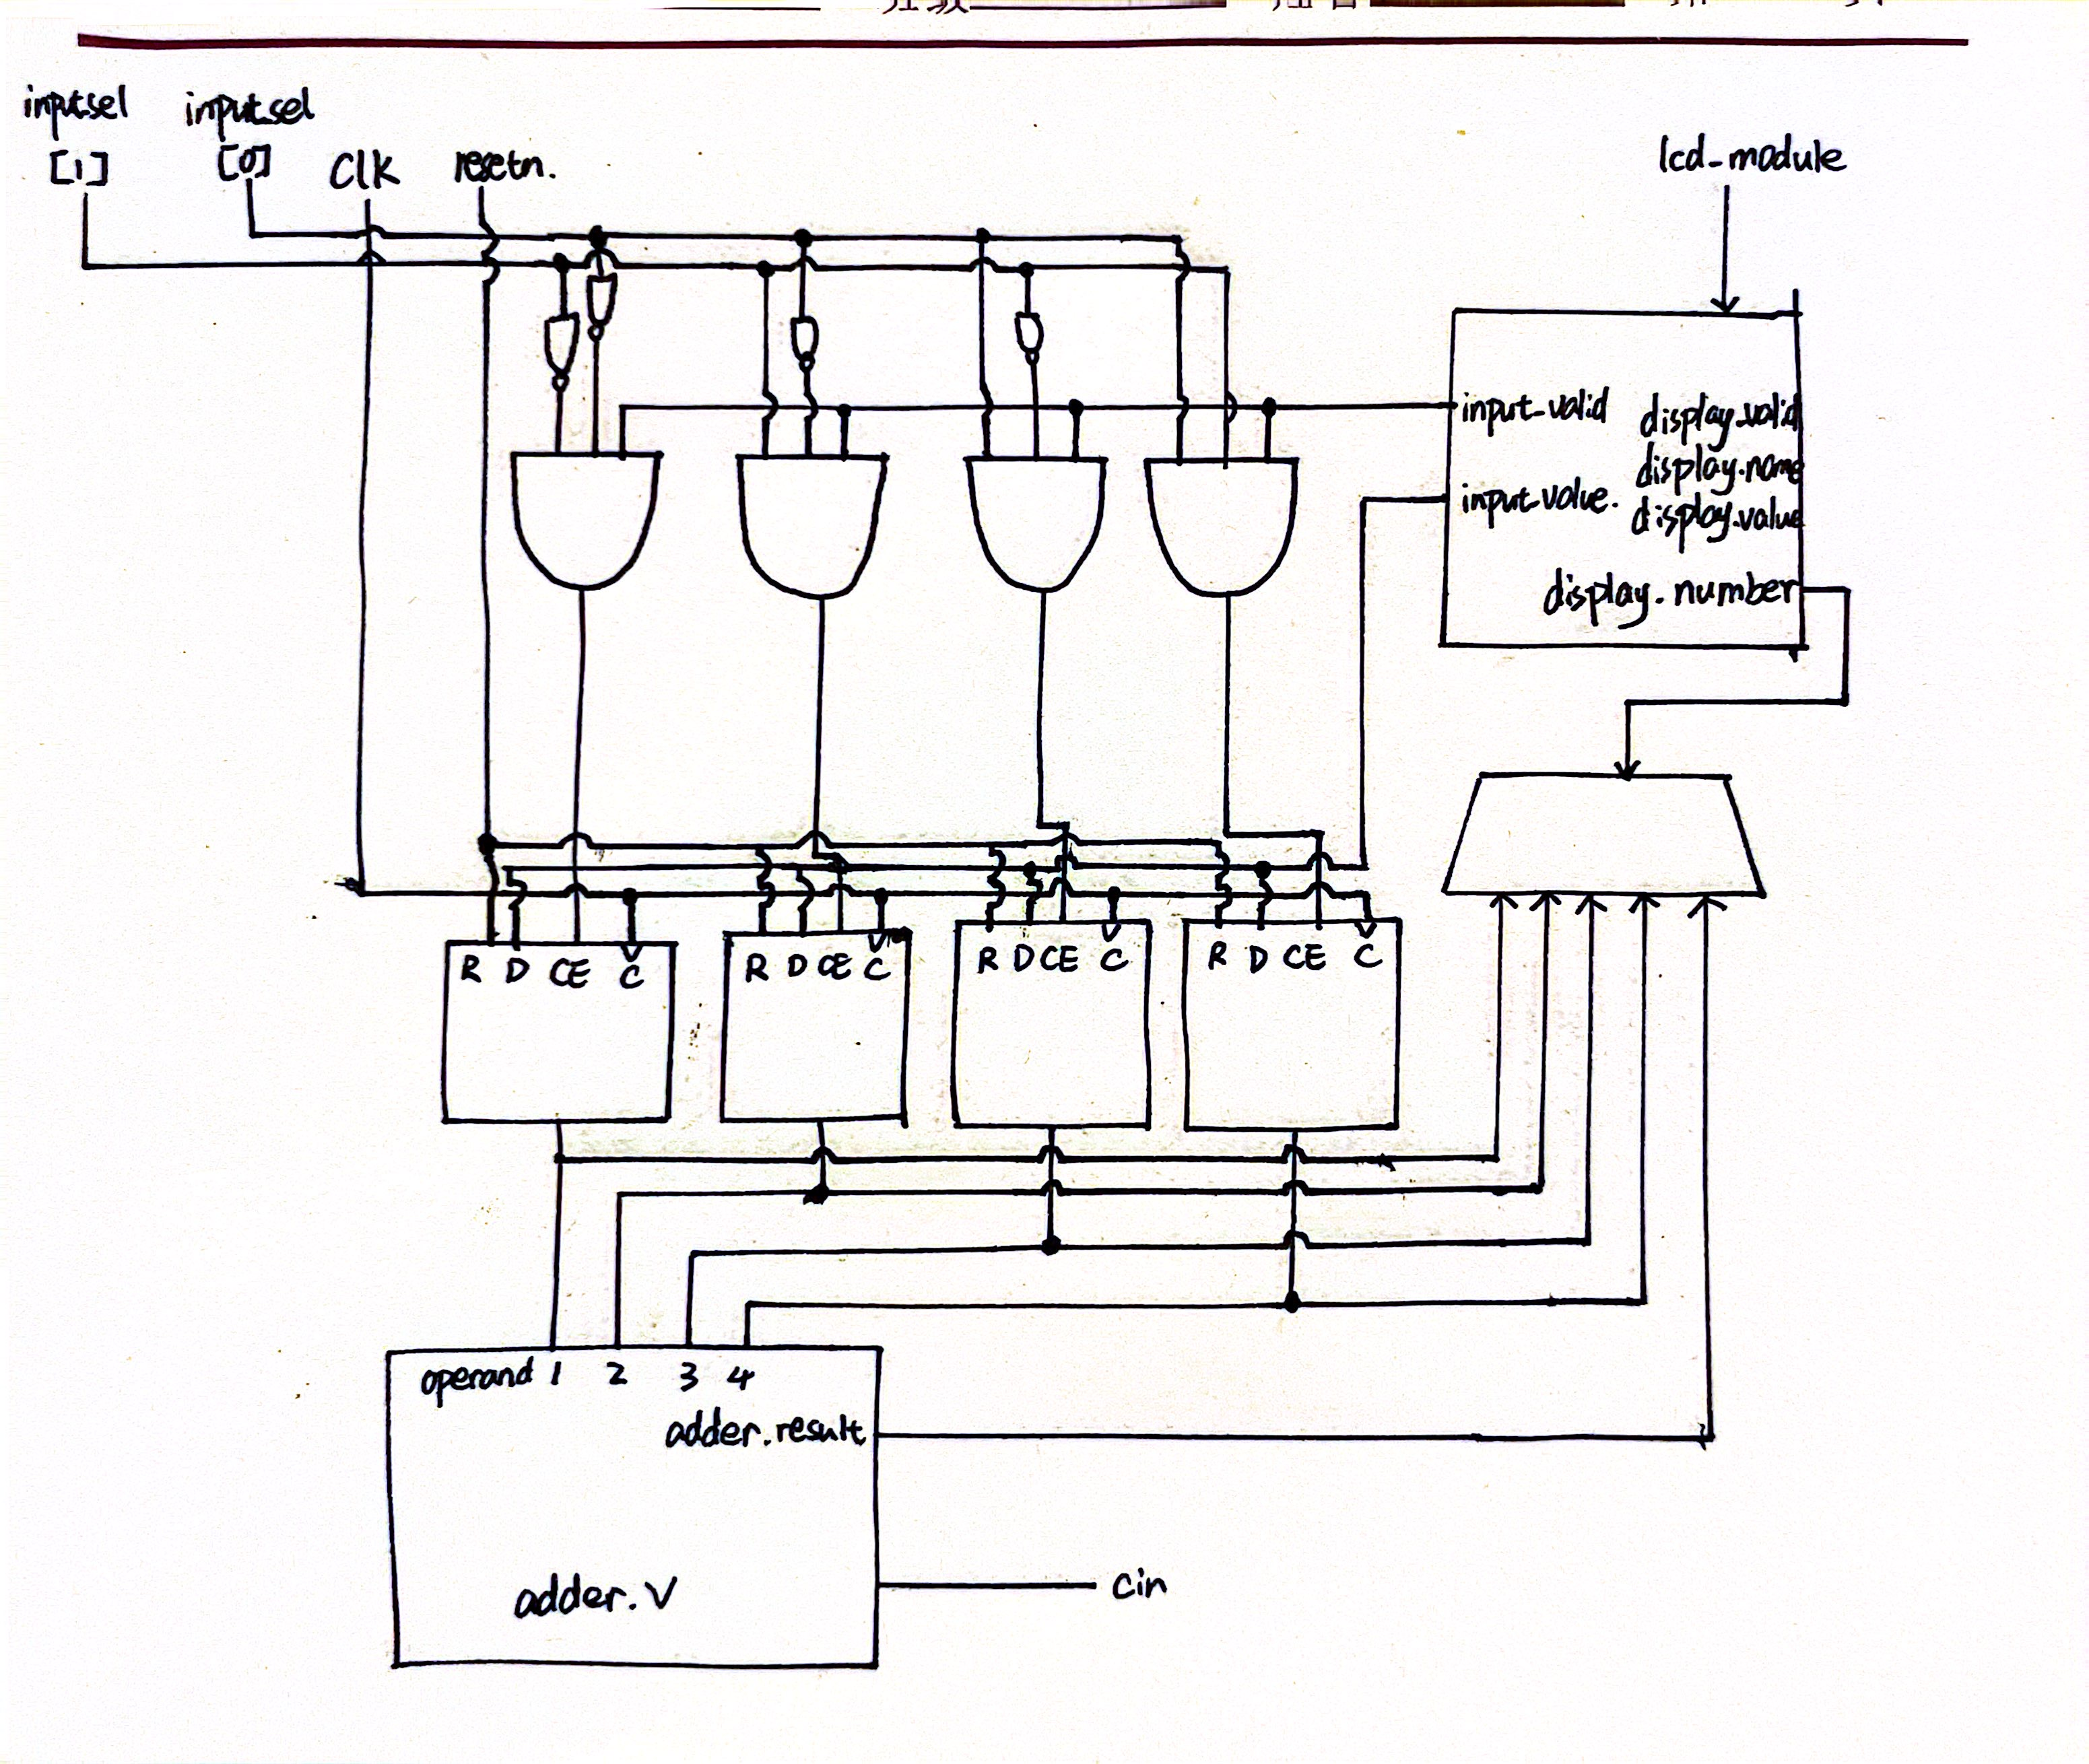 input_sel
[1]
input_sel
[0]
Clk
resetn.
lcd_module
input_valid
display_valid
display_name
input_value.
display_value
display_number
R D CE C
R D CE C
R D CE C
R D CE C
operand 1 2 3 4
adder_result
adder.v
cin